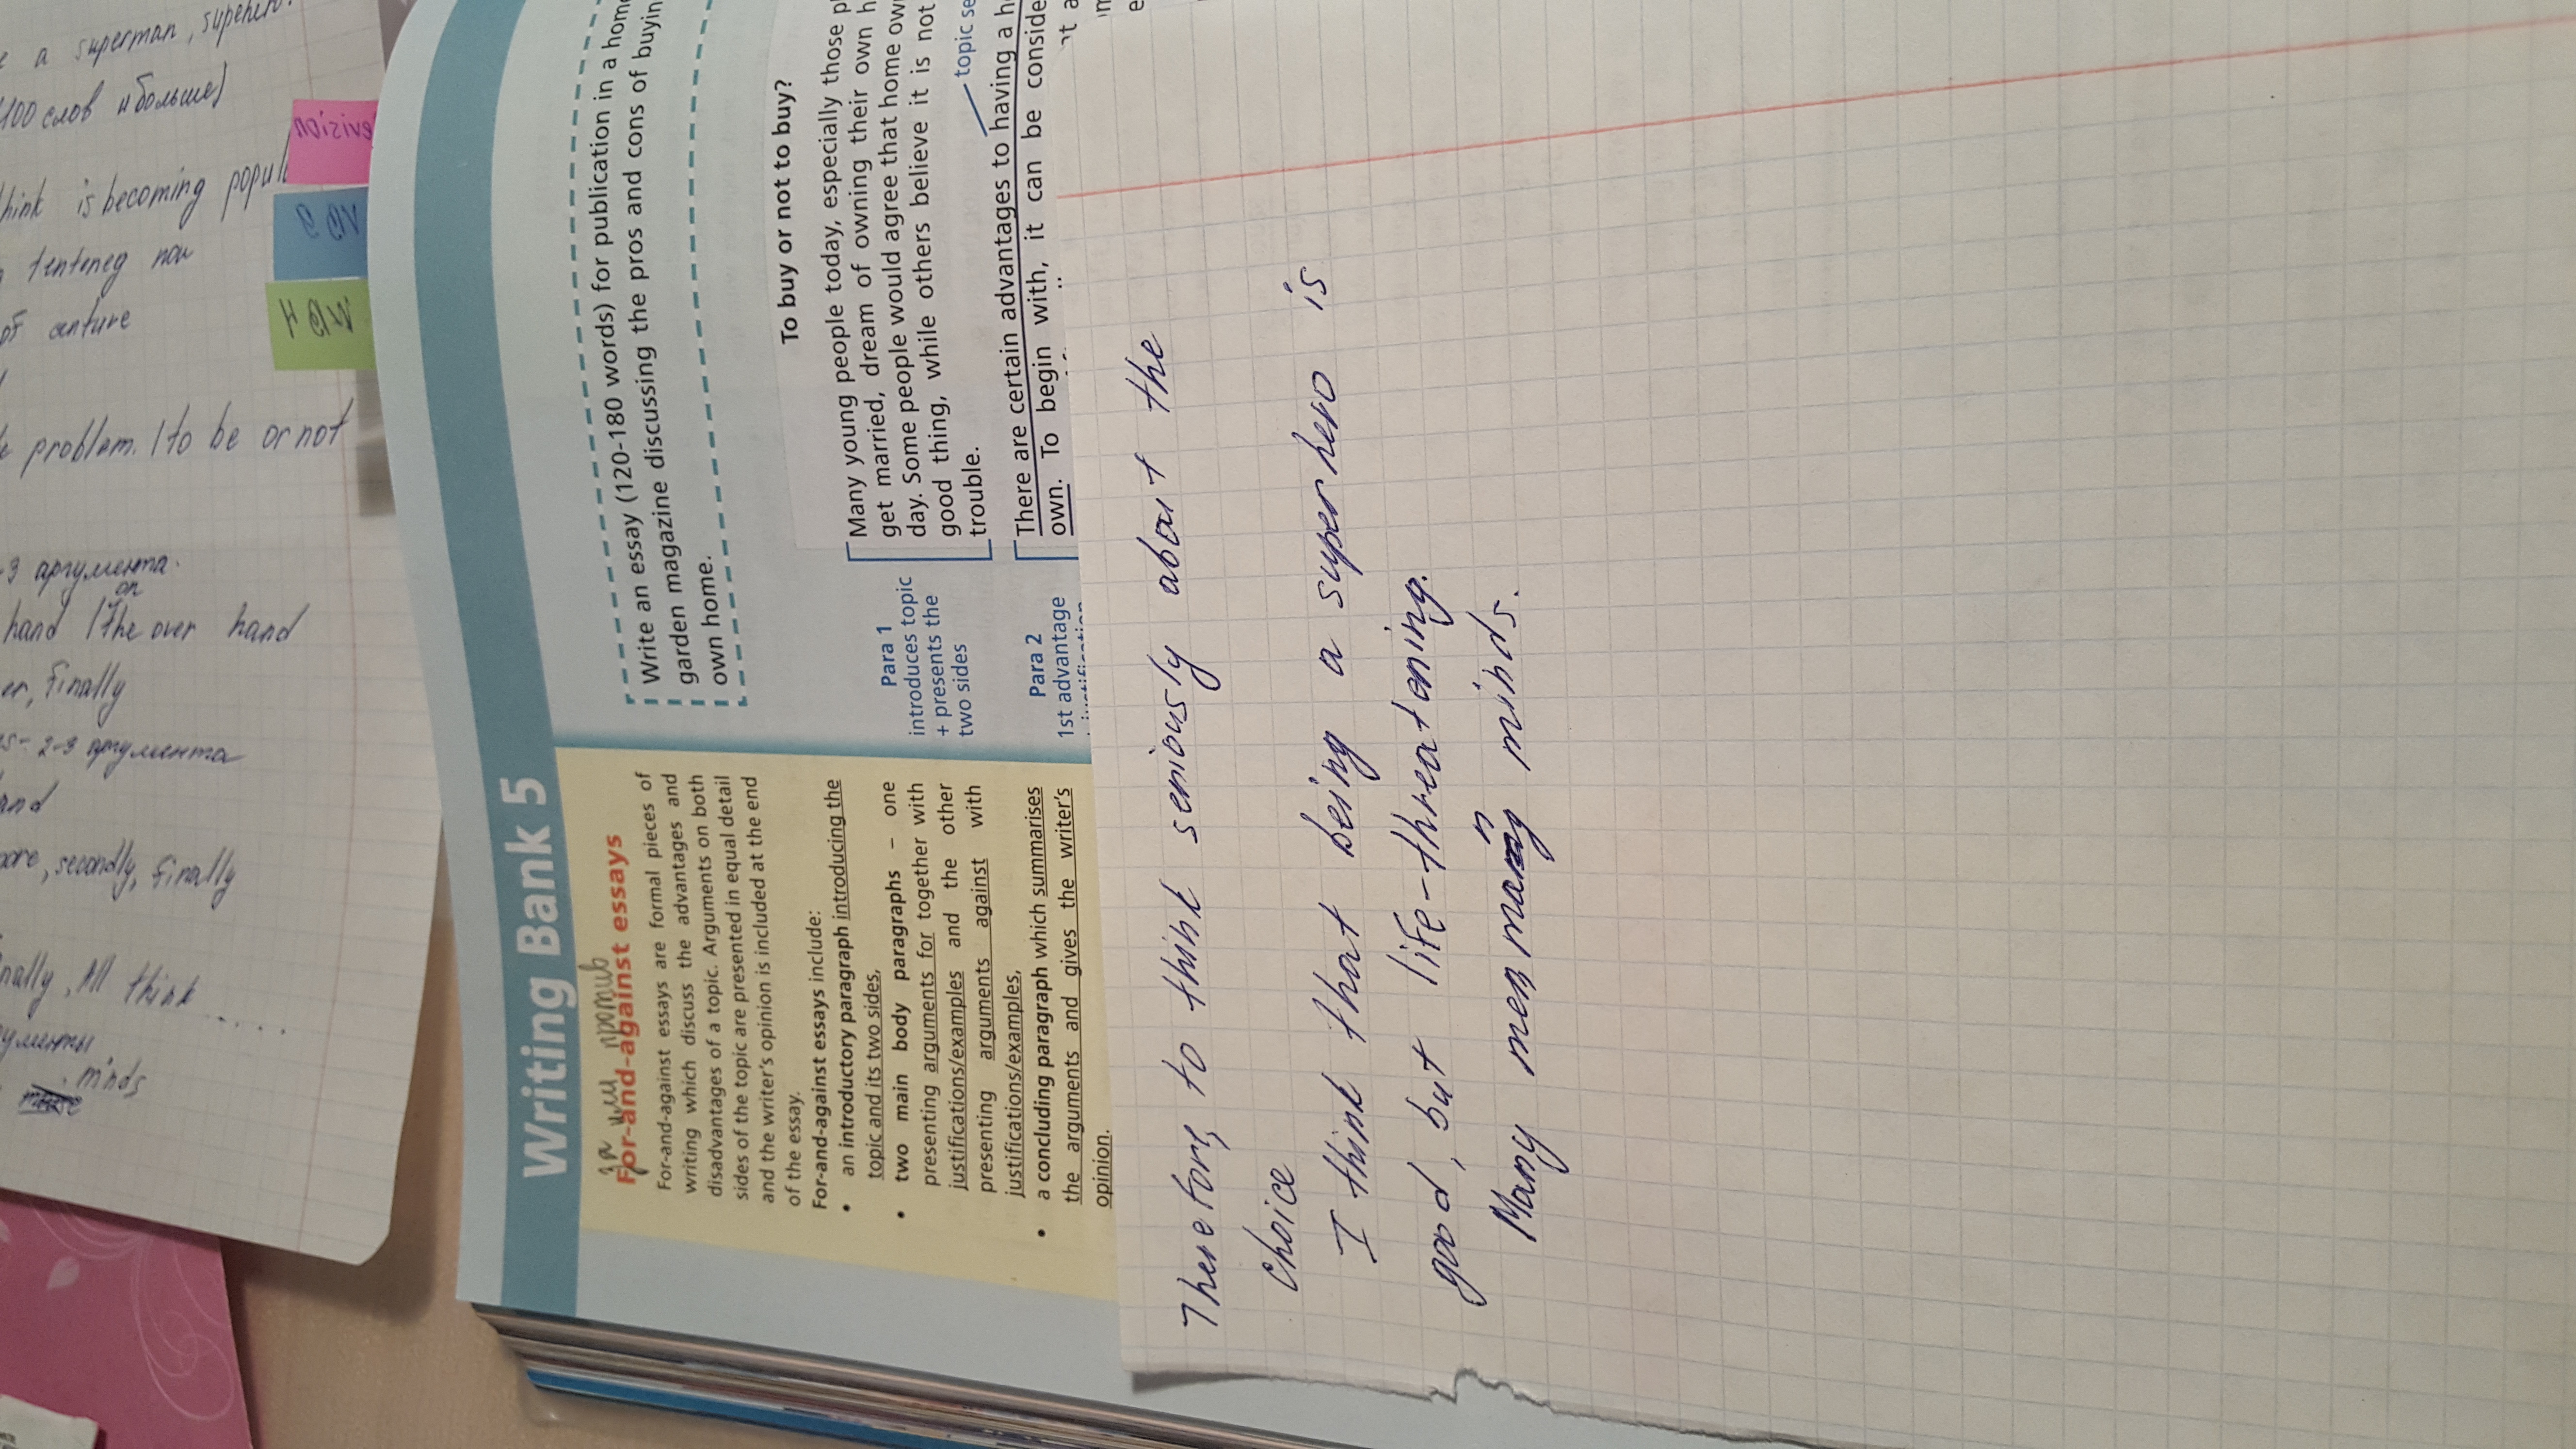 a superman, superhero.
100 слов и больше)
think is becoming popul
tenteneg now
of centure
problem. / to be or not
-3 аргумента.
on
hand / the over hand
er, finally
s- 2-3 аргумента
and
ore, secondly, finally
nally, All think .....
ументы
minds
evision
MD H
Writing Bank 5
за или против
For-and-against essays
For-and-against essays are formal pieces of
writing which discuss the advantages and
disadvantages of a topic. Arguments on both
sides of the topic are presented in equal detail
and the writer's opinion is included at the end
of the essay.
For-and-against essays include:
• an introductory paragraph introducing the
topic and its two sides,
• two main body paragraphs – one
presenting arguments for together with
justifications/examples and the other
presenting arguments against with
justifications/examples,
• a concluding paragraph which summarises
the arguments and gives the writer's
opinion.
Write an essay (120-180 words) for publication in a hom
garden magazine discussing the pros and cons of buyin
own home.
To buy or not to buy?
Para 1
introduces topic
+ presents the
two sides
Many young people today, especially those p
get married, dream of owning their own h
day. Some people would agree that home ow
good thing, while others believe it is not
trouble.
topic se
Para 2
1st advantage
There are certain advantages to having a h
own. To begin with, it can be conside
Therefore, to think seriously about the
choice
I think that being a superhero is
good, but life-threatening.
Many men many minds.